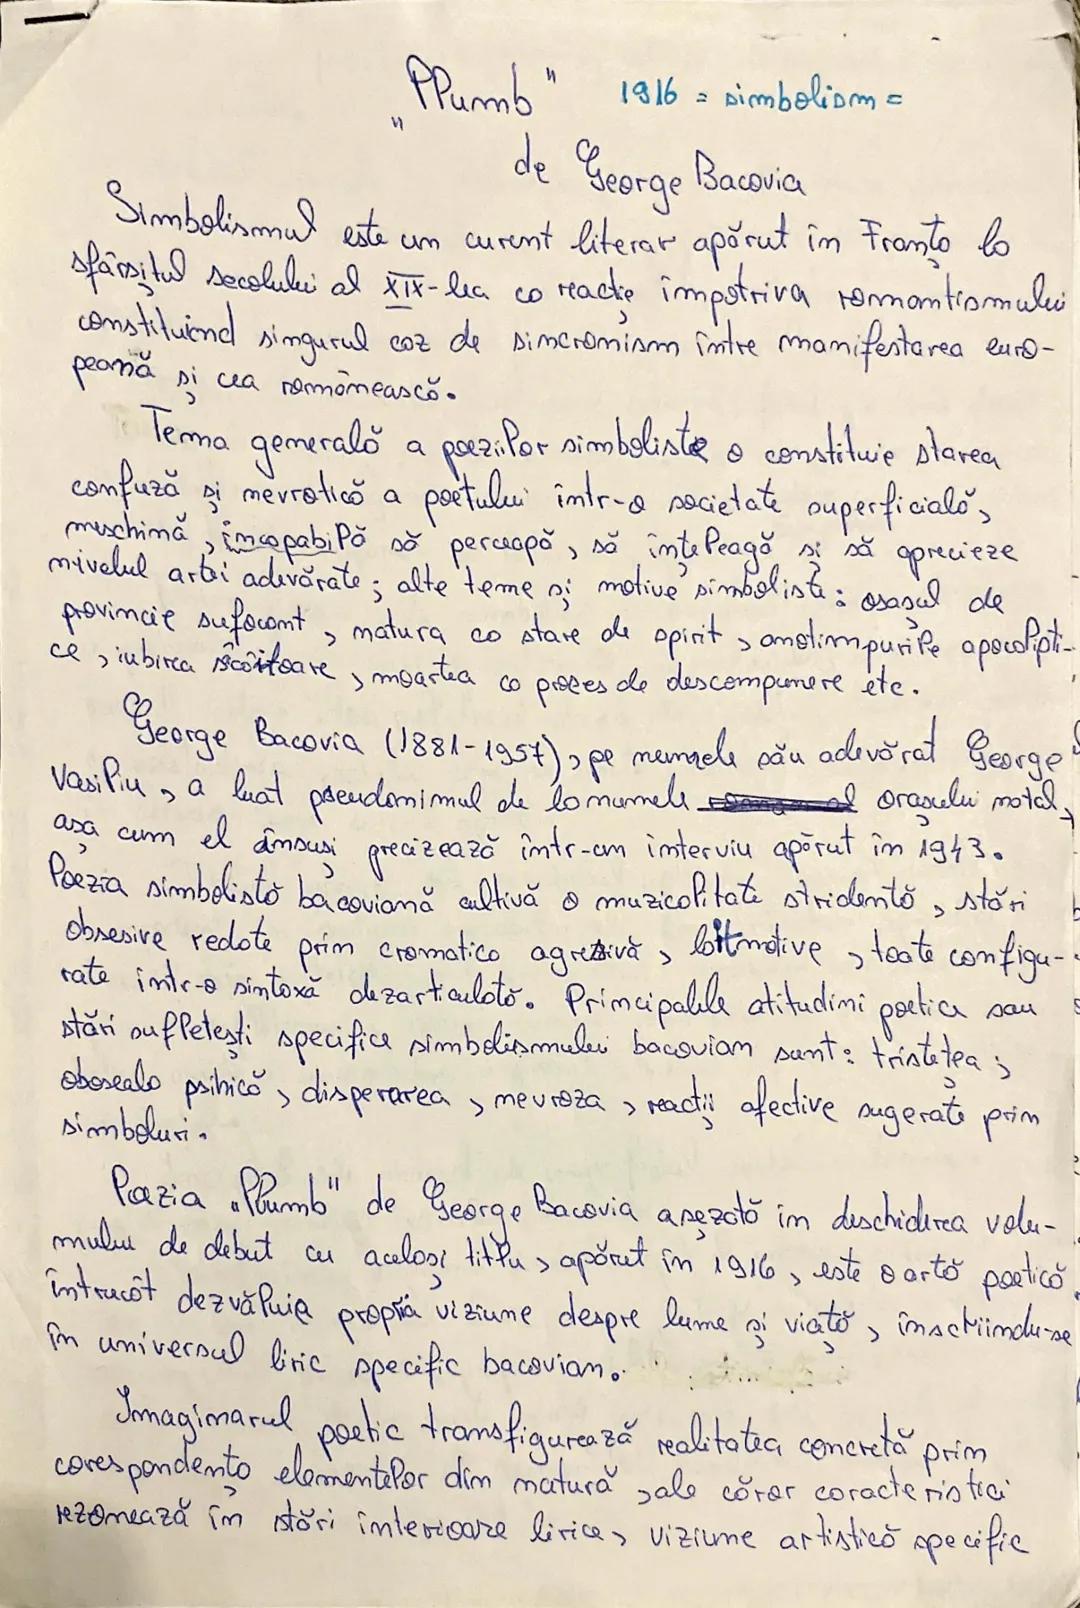 „Plumb" 1916 = simbolism =
de George Bacovia
Simbolismul este un curent literar apărut în Franța la
sfârșitul secolului al XIX-lea ca reacție împotriva romantismului
constituind singurul caz de sincronism între manifestarea euro-
peană și cea românească.
Tema generală a poeziilor simboliste o constituie starea
confuză și nevrotică a poetului într-o societate superficială,
meschină, incapabilă să perceapă, să înțeleagă și să aprecieze
nivelul artei adevărate; alte teme și motive simboliste: orașul de
provincie sufocant, natura ca stare de spirit, anotimpurile apocalipti-
ce, iubirea , moartea ca proces de descompunere etc.
George Bacovia (1881-1957), pe numele său adevărat George
Vasiliu, a luat pseudonimul de la numele orașului natal,
așa cum el ânsuși precizează într-un interviu apărut în 1943.
Poezia simbolistă bacoviană cultivă o muzicalitate stridentă, stări
obsesive redate prin cromatica agresivă, laitmotive, toate configu-
rate într-o sintaxă dezarticulată. Principalele atitudini poetice sau
stări sufletești specifice simbolismului bacovian sunt: tristețea;
oboseala psihică, disperarea, nevroza, reacții afective sugerate prin
simboluri.
Poezia „Plumb" de George Bacovia așezată în deschiderea volu-
mului de debut cu același titlu, apărut în 1916, este o artă poetică,
întrucât dezvăluie propria viziune despre lume și viață, înscriindu-se
în universul liric specific bacovian.
Imaginarul poetic transfigurează realitatea concretă prin
corespondența elementelor din natură, ale căror caracteristici
rezonează în stări interioare lirice, viziune artistică specific